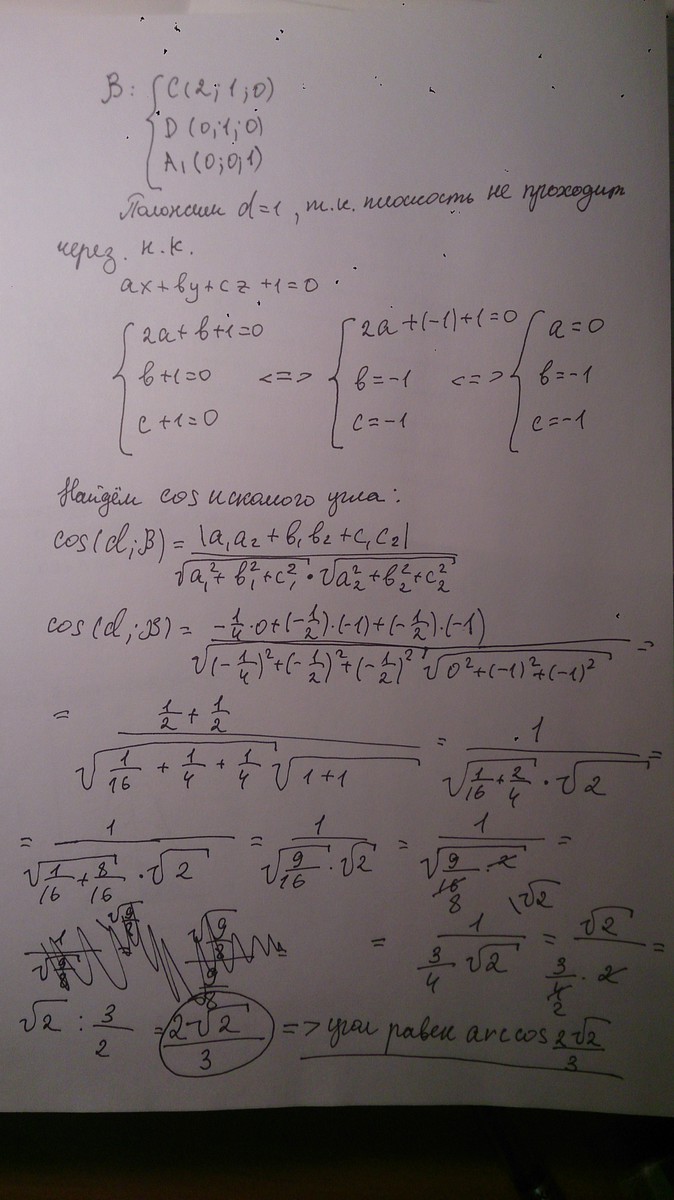 β: { C(2; 1; 0)
D (0; 1; 0)
A₁ (0; 0; 1)
Положим d=1, т.к. плоскость не проходит
через н.к.
ax+by+cz+1=0
{ 2a+b+1=0 { 2a+(-1)+1=0 { a=0
b+1=0 <=> b=-1 <=> b=-1
c+1=0 c=-1 c=-1
Найдём cos искомого угла:
cos(α;β) = |a₁a₂+b₁b₂+c₁c₂| / √(a₁²+b₁²+c₁²) · √(a₂²+b₂²+c₂²)
cos(α;β) = -1/4·0+(-1/2)·(-1)+(-1/2)·(-1) / √((-1/4)²+(-1/2)²+(-1/2)²) √(0²+(-1)²+(-1)²) =
= 1/2 + 1/2 / √(1/16 + 1/4 + 1/4) √(1+1) = 1 / √(1/16 + 2/4) · √2 =
= 1 / √(1/16 + 8/16) · √2 = 1 / √(9/16) · √2 = 1 / √(9/16 · 2) =
8 \√2
= 1 / 3/4 √2 = √2 / 3/4 · 2 =
2
√2 : 3/2 = 2√2/3 => угол равен arccos 2√2/3